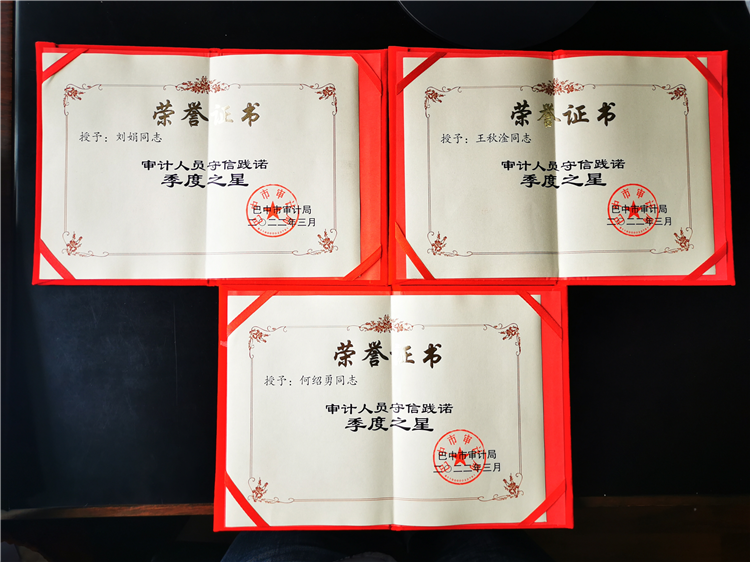 荣誉证书
授予：刘娟同志
审计人员守信践诺
季度之星
巴中市审计局
二〇二二年三月
荣誉证书
授予：王秋淦同志
审计人员守信践诺
季度之星
巴中市审计局
二〇二二年三月
荣誉证书
授予：何绍勇同志
审计人员守信践诺
季度之星
巴中市审计局
二〇二二年三月